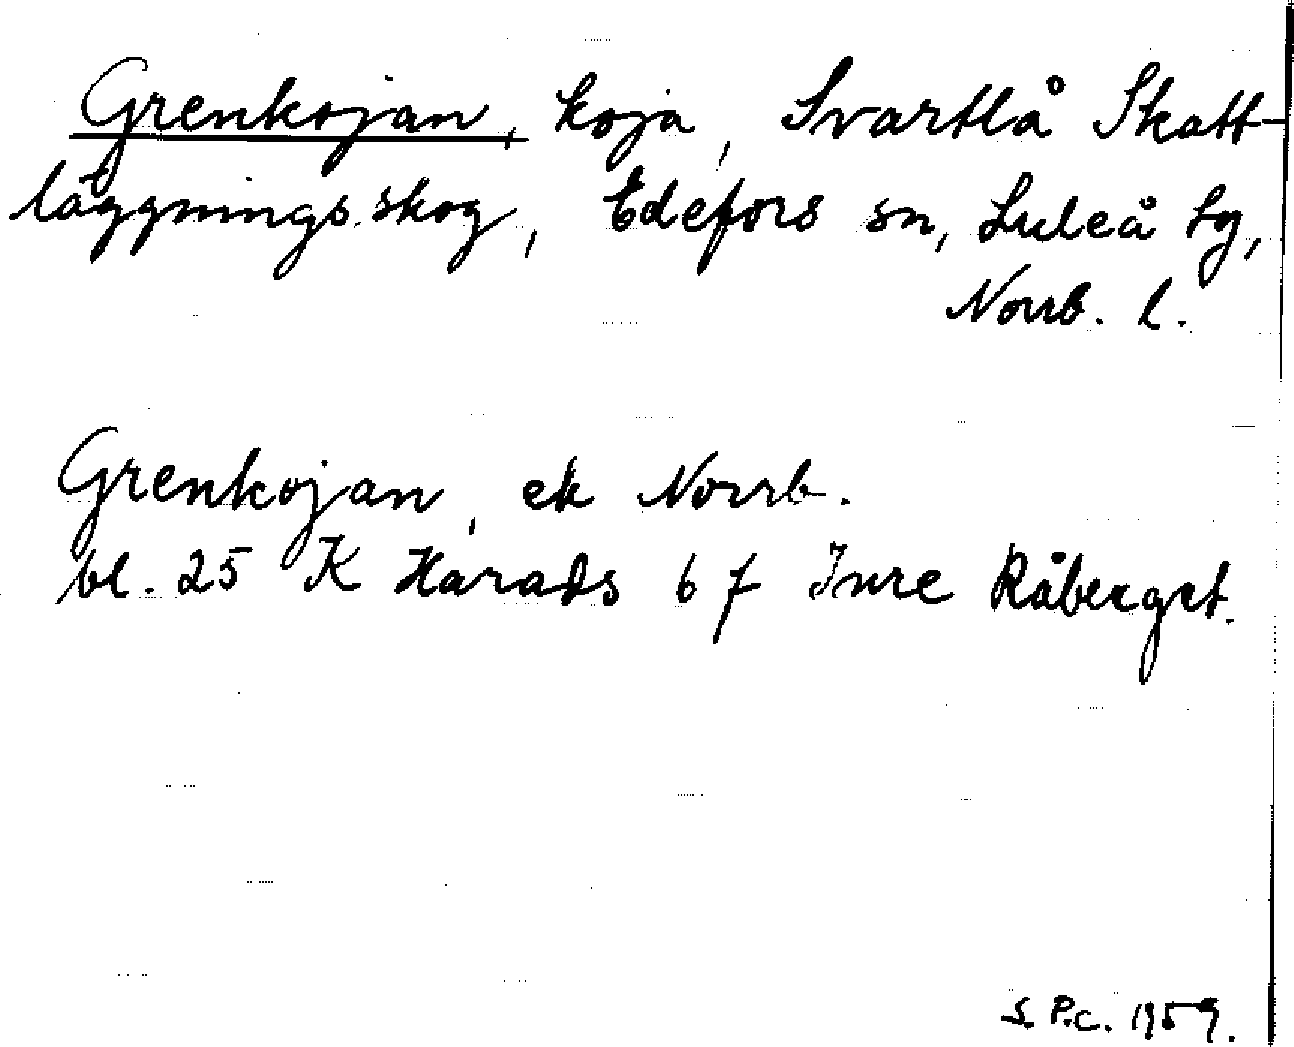 Grenkojan, koja, Svartlå Skatt-
läggningsskog, Edefors sn, Luleå tg,
Norrb. l.
Grenkojan, ek Norrb.
bl. 25 K Harads 6 f Inre Råberget.
S. P.c. 1959.